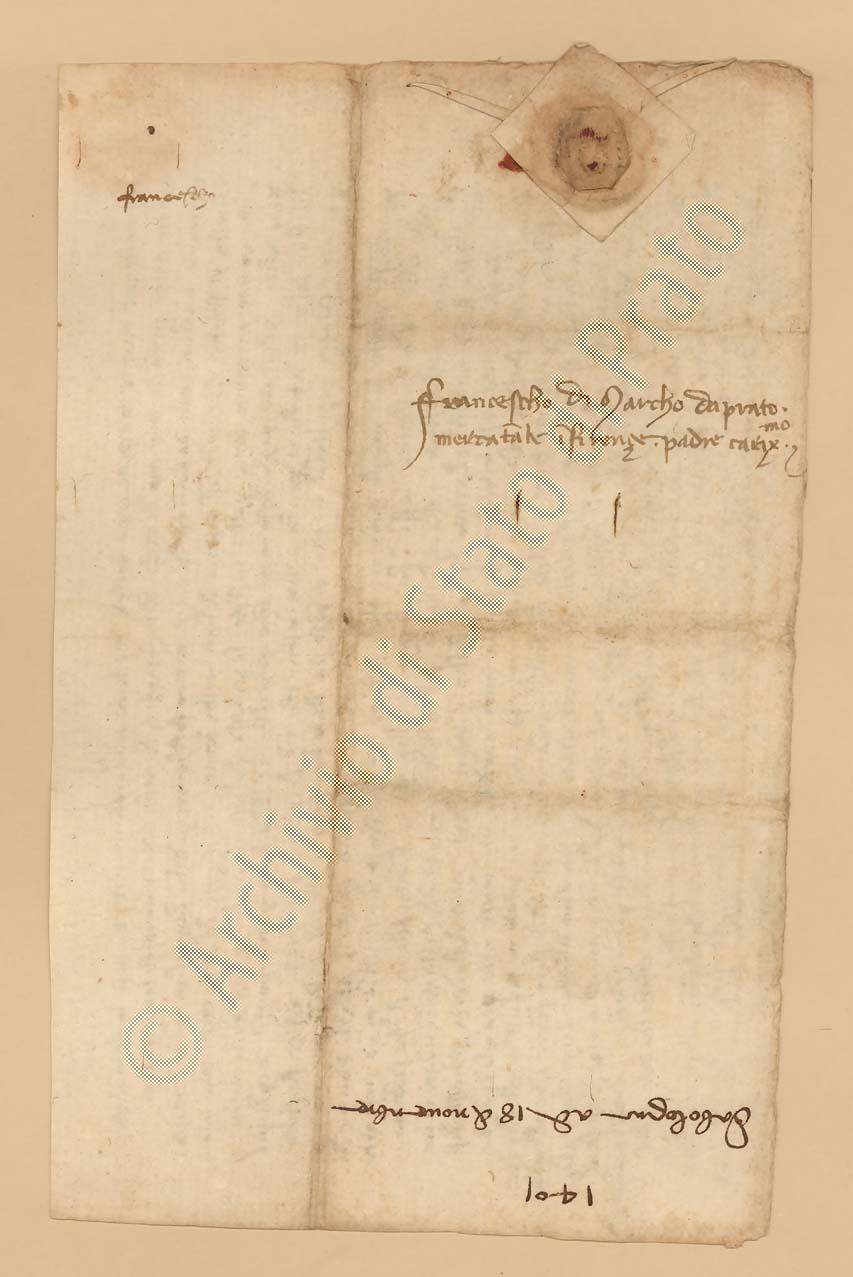 francescho
Francescho di Marcho da prato.
mercatãte ĩ Firençe. padre carix.mo
Da bologna a dì 18 di novenbre
1401
© Archivio di Stato di Prato